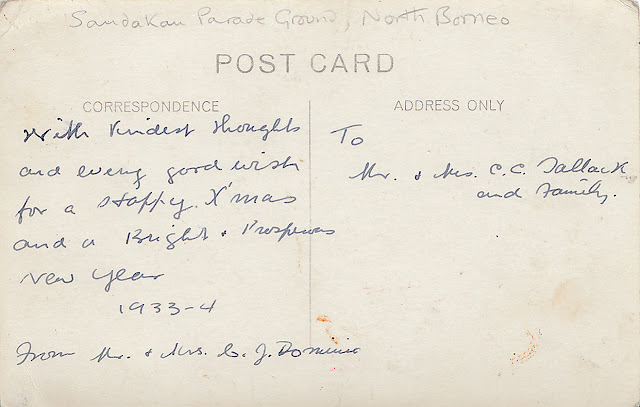 Sandakan Parade Ground, North Borneo
POST CARD
CORRESPONDENCE
With kindest thoughts
and every good wish
for a Happy X'mas
and a Bright & Prosperous
New Year
1933-4
From Mr. & Mrs. C. J. Dominic
ADDRESS ONLY
To
Mr. & Mrs. C. C. Tallack
and Family.